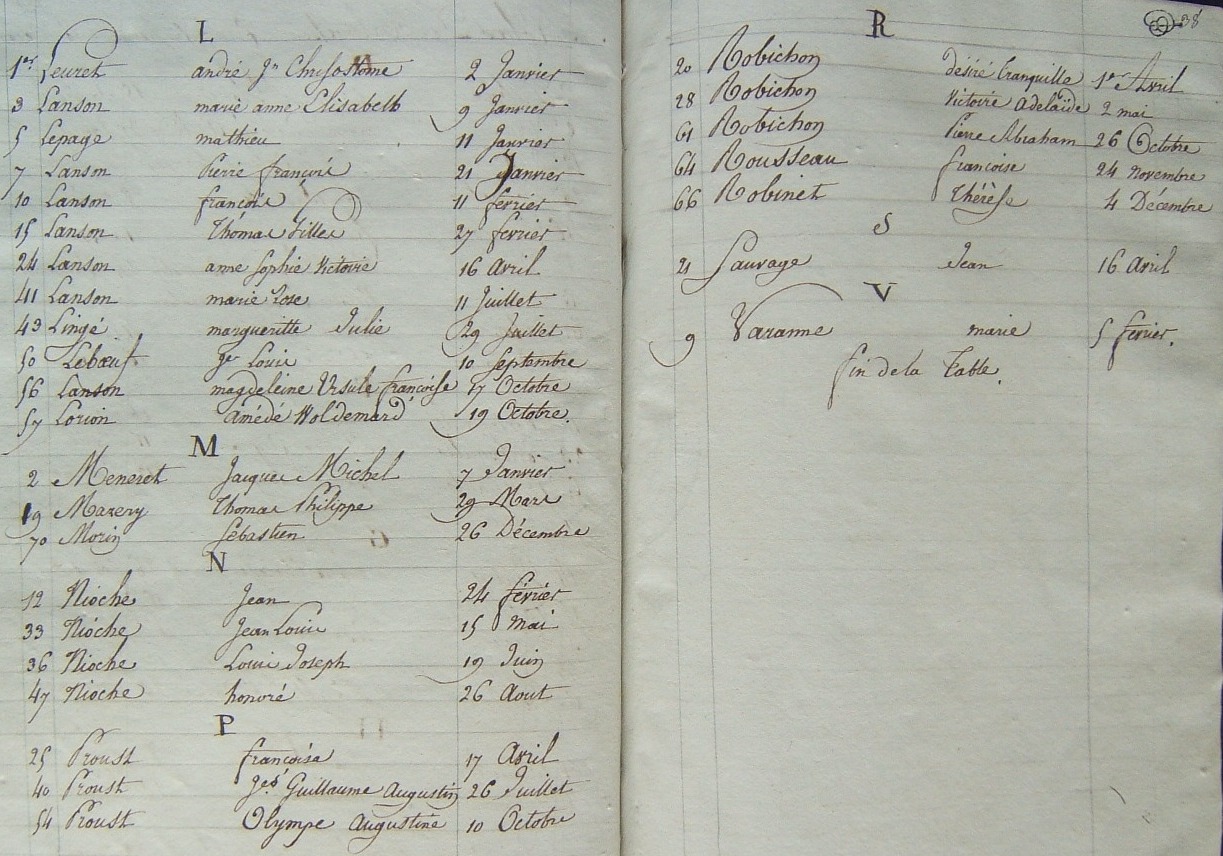 L
1er Leuret andré Jn Chrisostome 2 Janvier
3 Lanson marie anne Elisabeth 9 Janvier
5 Lepage mathieu 11 Janvier
7 Lanson Pierre françois 21 Janvier
10 Lanson françois 11 fevrier
15 Lanson Thomas Gilles 27 fevrier
24 Lanson anne Sophie Victoire 16 Avril
41 Lanson marie Rose 11 Juillet
43 Lingé margueritte Julie 29 Juillet
50 Lebœuf Louis 10 Septembre
56 Lanson magdeleine Ursule françoise 17 Octobre
57 Lorion amédé Woldemard 19 Octobre.
M
2 Meneret Jacques Michel 7 Janvier
19 Marery Thomas Philippe 29 Mars
70 Morin Sébastien 26 Décembre
N
12 Nioche Jean 24 février
33 Nioche Jean Louis 15 mai
36 Nioche Louis Joseph 19 Juin
47 Nioche honoré 26 Aout
P
25 Proust françoise 17 Avril
40 Proust Guillaume Augustin 26 Juillet
54 Proust Olympe Augustine 10 Octobre
38
R
20 Robichon désiré tranquille 1er Avril
28 Robichon Victoire Adelaïde 2 mai
61 Robichon Pierre Abraham 26 Octobre
64 Rousseau françoise 24 novembre
66 Robinet Thérèse 4 Décembre
S
21 Sauvage Jean 16 Avril
V
9 Varanne marie 5 fevrier.
fin de la Table.